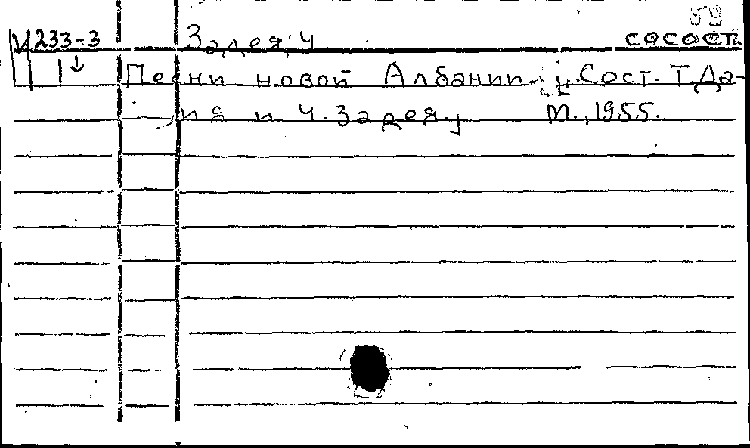 59
М 233-3 Задея, Ч сосост.
1↓ Песни новой Албании. [Сост. Т. Да-
ия и Ч. Задея.] М., 1955.